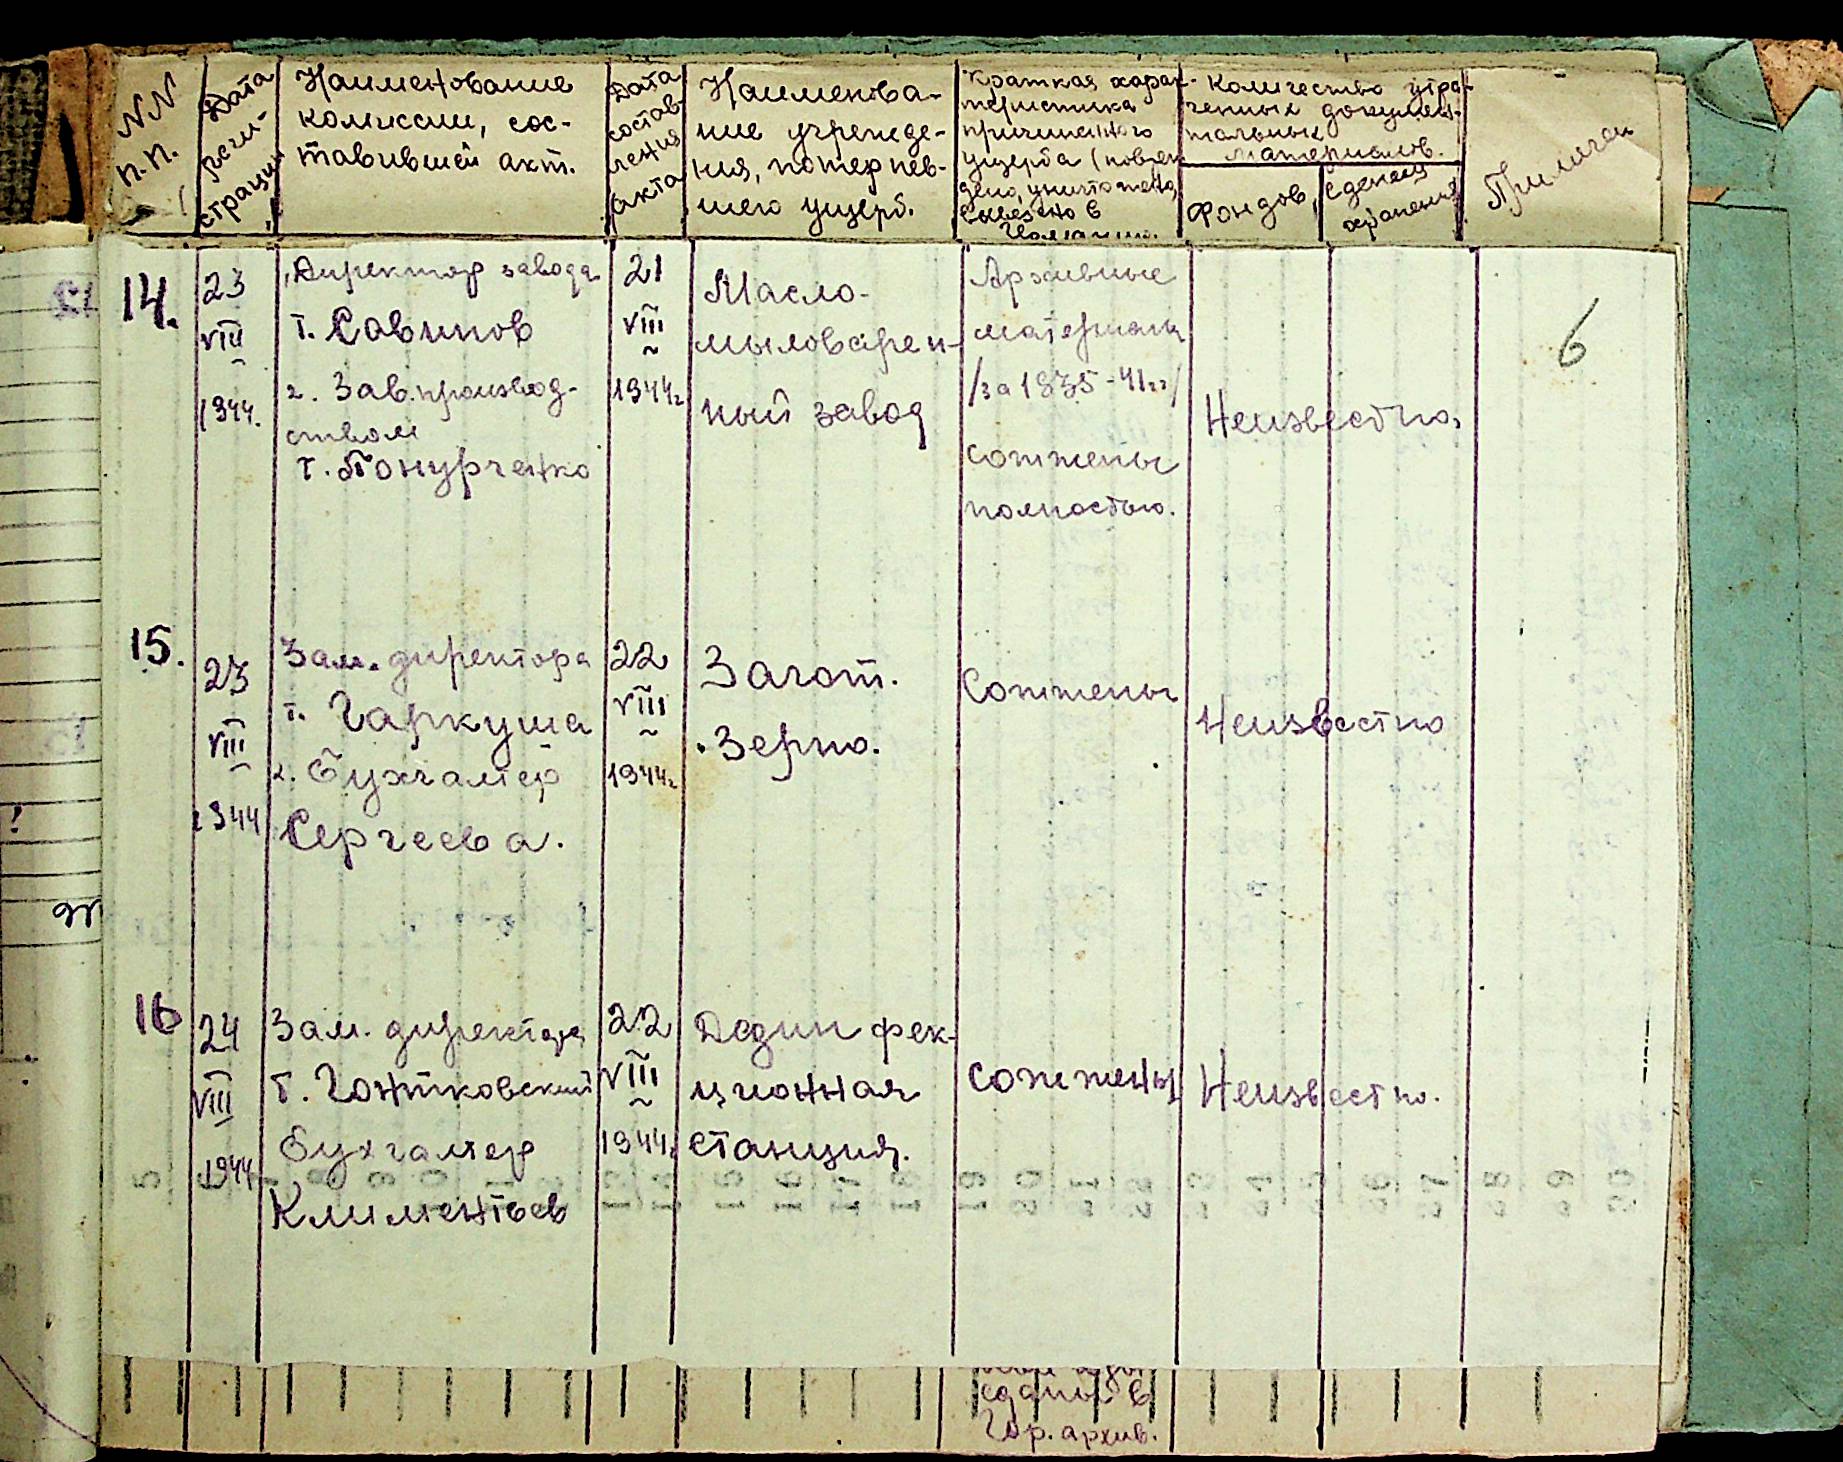 NN
п.п.
Дата
реги-
страции
Наименование
комиссии, сос-
тавившей акт.
Дата
состав
ления
акта
Наименова-
ние учрежде-
ния, потерпев-
шего ущерб.
Краткая харак-
теристика
причиненного
ущерба (повреж
дено, уничтожено,
вывезено в
Германию.
Количество утра-
ченных докумен-
тальных
материалов.
Фондов,
единиц
хранения
Примечан
6
14.
23
VIII
1944.
1. Директор завода
т. Савинов
2. Зав. производ-
ством
т. Понурченко
21
VIII
1944г
Масло-
мыловарен-
ный завод
Архивные
материалы
/за 1935-41гг/
сожжены
полностью.
Неизвестно,
15.
23
VIII
1944
Зам. директора
т. Гаркуша
2. бухгалтер
Сергеева.
22
VIII
1944г
Загот.
Зерно.
Сожжены
Неизвестно
16
24
VIII
1944
Зам. директора
т. Гонтковский
бухгалтер
Климентьев
22
VIII
1944г
Дезинфек-
ционная
станция.
сожжены
Неизвестно.
сданы в
Гор. архив.